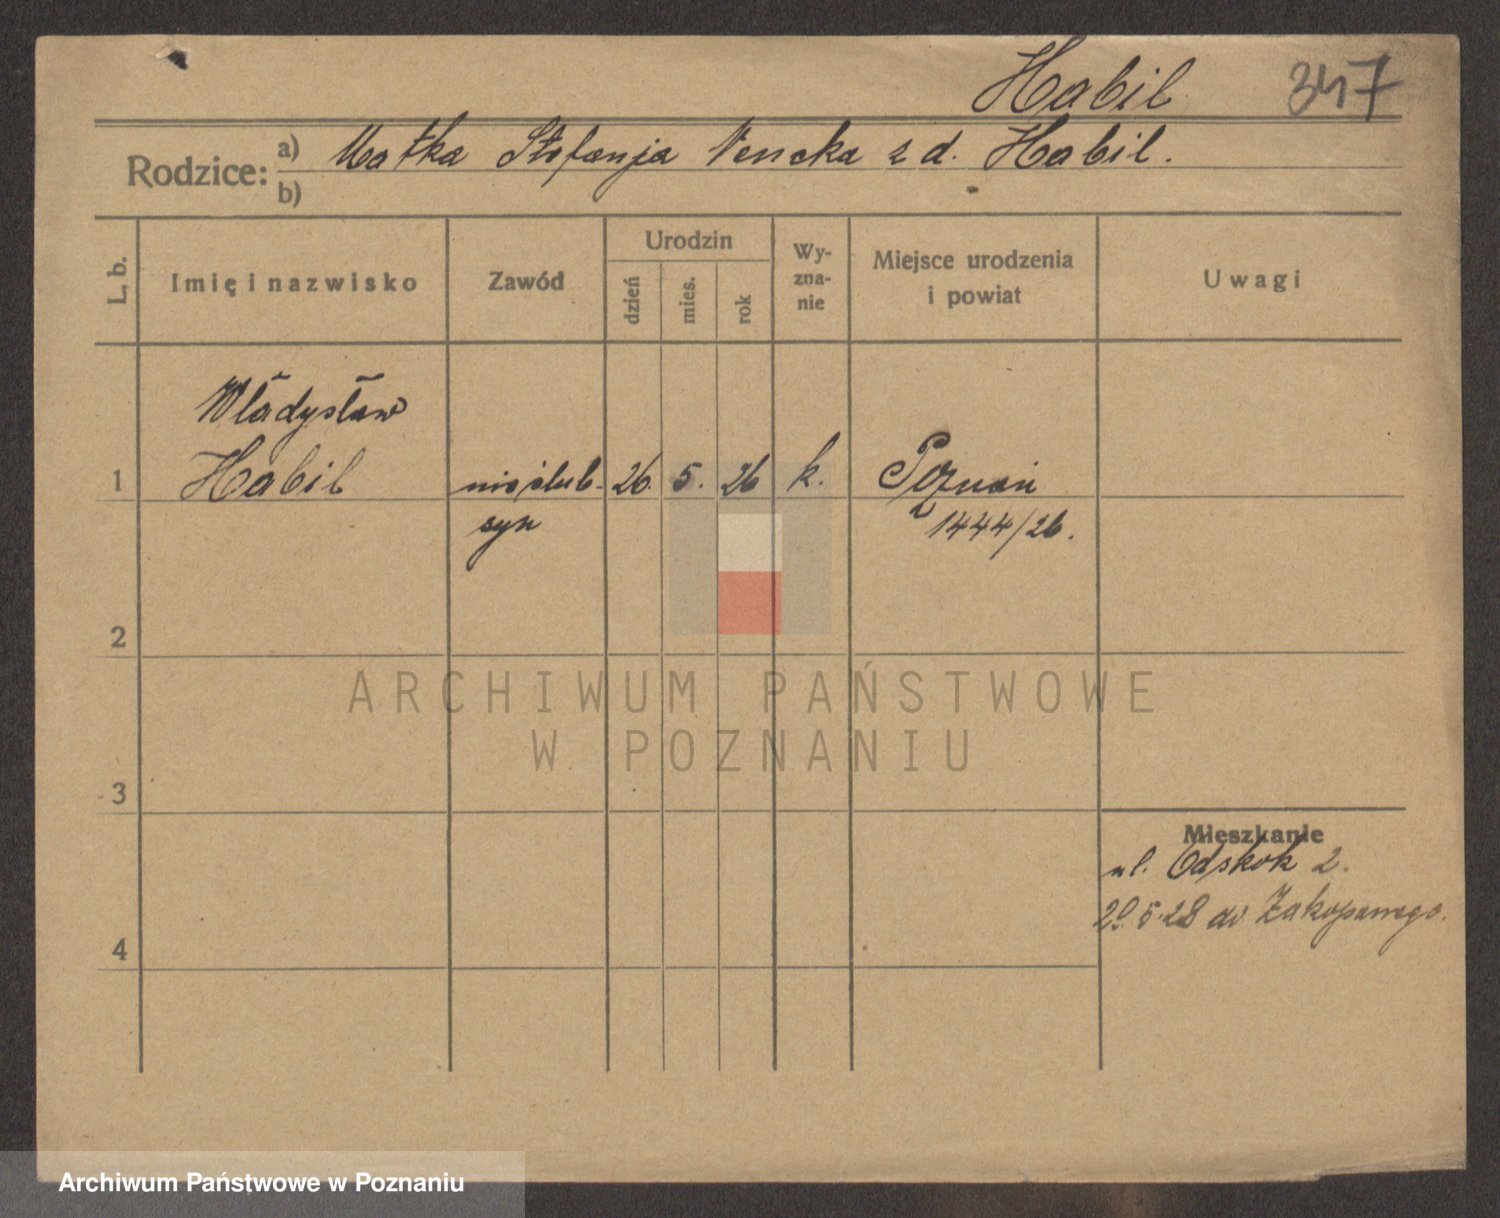 Habil 347
Rodzice: a) Matka Stefanja Nencka z d. Habil.
b)
L. b. Imię i nazwisko Zawód Urodzin dzień mies. rok Wy-zna-nie Miejsce urodzenia i powiat Uwagi
Władysław
1 Habil nieślub. 26. 5. 26 k. Poznań
syn 1444/26.
2
ARCHIWUM PAŃSTWOWE
W POZNANIU
3
Mieszkanie
ul. Odskok 2.
29.5.28 do Zakopanego.
4
Archiwum Państwowe w Poznaniu